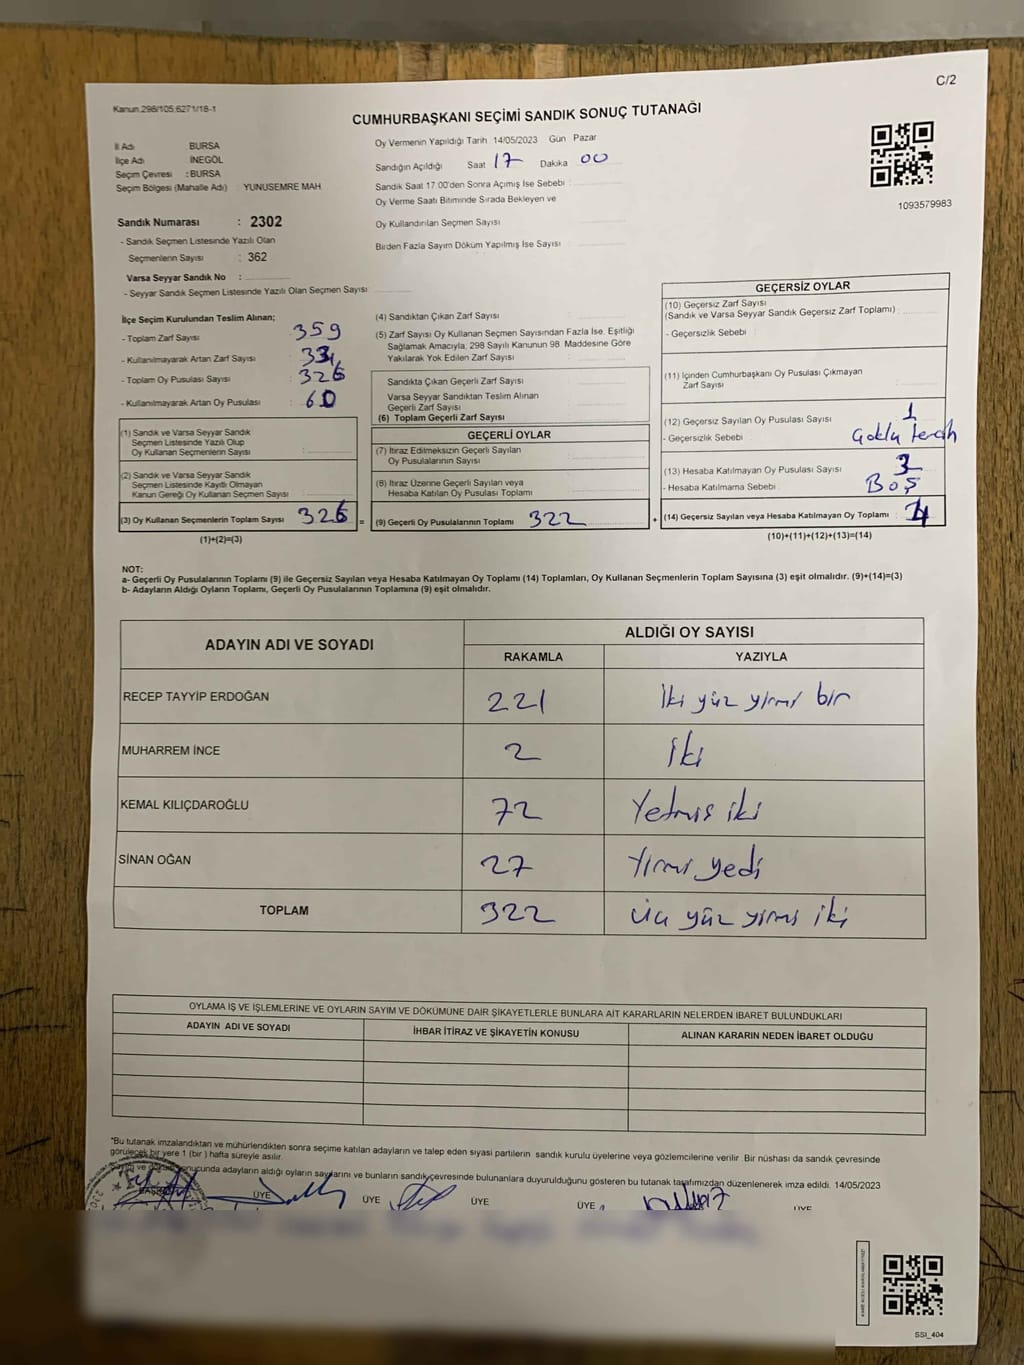 Kanun.298/105,6271/18-1
C/2
CUMHURBAŞKANI SEÇİMİ SANDIK SONUÇ TUTANAĞI
İl Adı BURSA
İlçe Adı İNEGÖL
Seçim Çevresi : BURSA
Seçim Bölgesi (Mahalle Adı) YUNUSEMRE MAH
Sandık Numarası : 2302
- Sandık Seçmen Listesinde Yazılı Olan
Seçmenlerin Sayısı : 362
Varsa Seyyar Sandık No :
- Seyyar Sandık Seçmen Listesinde Yazılı Olan Seçmen Sayısı
Oy Vermenin Yapıldığı Tarih 14/05/2023 Gün Pazar
Sandığın Açıldığı Saat 17 Dakika 00
Sandık Saat 17.00'den Sonra Açımış İse Sebebi :
Oy Verme Saati Bitiminde Sırada Bekleyen ve
Oy Kullandırılan Seçmen Sayısı
Birden Fazla Sayım Döküm Yapılmış İse Sayısı
1093579983
İlçe Seçim Kurulundan Teslim Alınan;
- Toplam Zarf Sayısı : 359
- Kullanılmayarak Artan Zarf Sayısı :
- Toplam Oy Pusulası Sayısı :
- Kullanılmayarak Artan Oy Pusulası : 60
(1) Sandık ve Varsa Seyyar Sandık
Seçmen Listesinde Yazılı Olup
Oy Kullanan Seçmenlerin Sayısı :
(2) Sandık ve Varsa Seyyar Sandık
Seçmen Listesinde Kayıtlı Olmayan
Kanun Gereği Oy Kullanan Seçmen Sayısı
(3) Oy Kullanan Seçmenlerin Toplam Sayısı : 326
(1)+(2)=(3)
(4) Sandıktan Çıkan Zarf Sayısı :
(5) Zarf Sayısı Oy Kullanan Seçmen Sayısından Fazla İse, Eşitliği
Sağlamak Amacıyla, 298 Sayılı Kanunun 98. Maddesine Göre
Yakılarak Yok Edilen Zarf Sayısı :
Sandıkta Çıkan Geçerli Zarf Sayısı :
Varsa Seyyar Sandıktan Teslim Alınan
Geçerli Zarf Sayısı
(6) Toplam Geçerli Zarf Sayısı :
GEÇERLİ OYLAR
(7) İtiraz Edilmeksizin Geçerli Sayılan
Oy Pusulalarının Sayısı :
(8) İtiraz Üzerine Geçerli Sayılan veya
Hesaba Katılan Oy Pusulası Toplamı
= (9) Geçerli Oy Pusulalarının Toplamı 322
GEÇERSİZ OYLAR
(10) Geçersiz Zarf Sayısı
(Sandık ve Varsa Seyyar Sandık Geçersiz Zarf Toplamı) :
- Geçersizlik Sebebi :
(11) İçinden Cumhurbaşkanı Oy Pusulası Çıkmayan
Zarf Sayısı
(12) Geçersiz Sayılan Oy Pusulası Sayısı : 1
- Geçersizlik Sebebi : Çoklu tercih
(13) Hesaba Katılmayan Oy Pusulası Sayısı : 3
- Hesaba Katılmama Sebebi : Boş
+ (14) Geçersiz Sayılan veya Hesaba Katılmayan Oy Toplamı : 4
(10)+(11)+(12)+(13)=(14)
NOT:
a- Geçerli Oy Pusulalarının Toplamı (9) ile Geçersiz Sayılan veya Hesaba Katılmayan Oy Toplamı (14) Toplamları, Oy Kullanan Seçmenlerin Toplam Sayısına (3) eşit olmalıdır. (9)+(14)=(3)
b- Adayların Aldığı Oyların Toplamı, Geçerli Oy Pusulalarının Toplamına (9) eşit olmalıdır.
ADAYIN ADI VE SOYADI
ALDIĞI OY SAYISI
RAKAMLA YAZIYLA
RECEP TAYYİP ERDOĞAN 221 İki yüz yirmi bir
MUHARREM İNCE 2 İki
KEMAL KILIÇDAROĞLU 72 Yetmiş iki
SİNAN OĞAN 27 Yirmi yedi
TOPLAM 322 üç yüz yirmi iki
OYLAMA İŞ VE İŞLEMLERİNE VE OYLARIN SAYIM VE DÖKÜMÜNE DAİR ŞİKAYETLERLE BUNLARA AİT KARARLARIN NELERDEN İBARET BULUNDUKLARI
ADAYIN ADI VE SOYADI
İHBAR İTİRAZ VE ŞİKAYETİN KONUSU
ALINAN KARARIN NEDEN İBARET OLDUĞU
*Bu tutanak imzalandıktan ve mühürlendikten sonra seçime katılan adayların ve talep eden siyasi partilerin sandık kurulu üyelerine veya gözlemcilerine verilir. Bir nüshası da sandık çevresinde
görülecek bir yere 1 (bir ) hafta süreyle asılır.
sonucunda adayların aldığı oyların sayılarını ve bunların sandık çevresinde bulunanlara duyurulduğunu gösteren bu tutanak tarafımızdan düzenlenerek imza edildi. 14/05/2023
BAŞKAN ÜYE ÜYE ÜYE ÜYE ÜYE
SSI_404